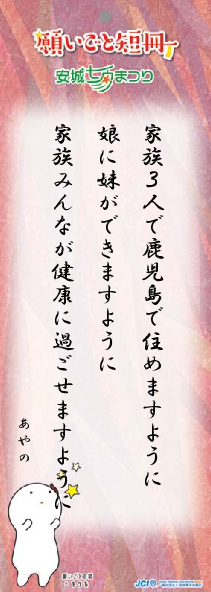 願いごと短冊
安城七夕まつり
家族3人で鹿児島で住めますように
娘に妹ができますように
家族みんなが健康に過ごせますように
あやの
JCI